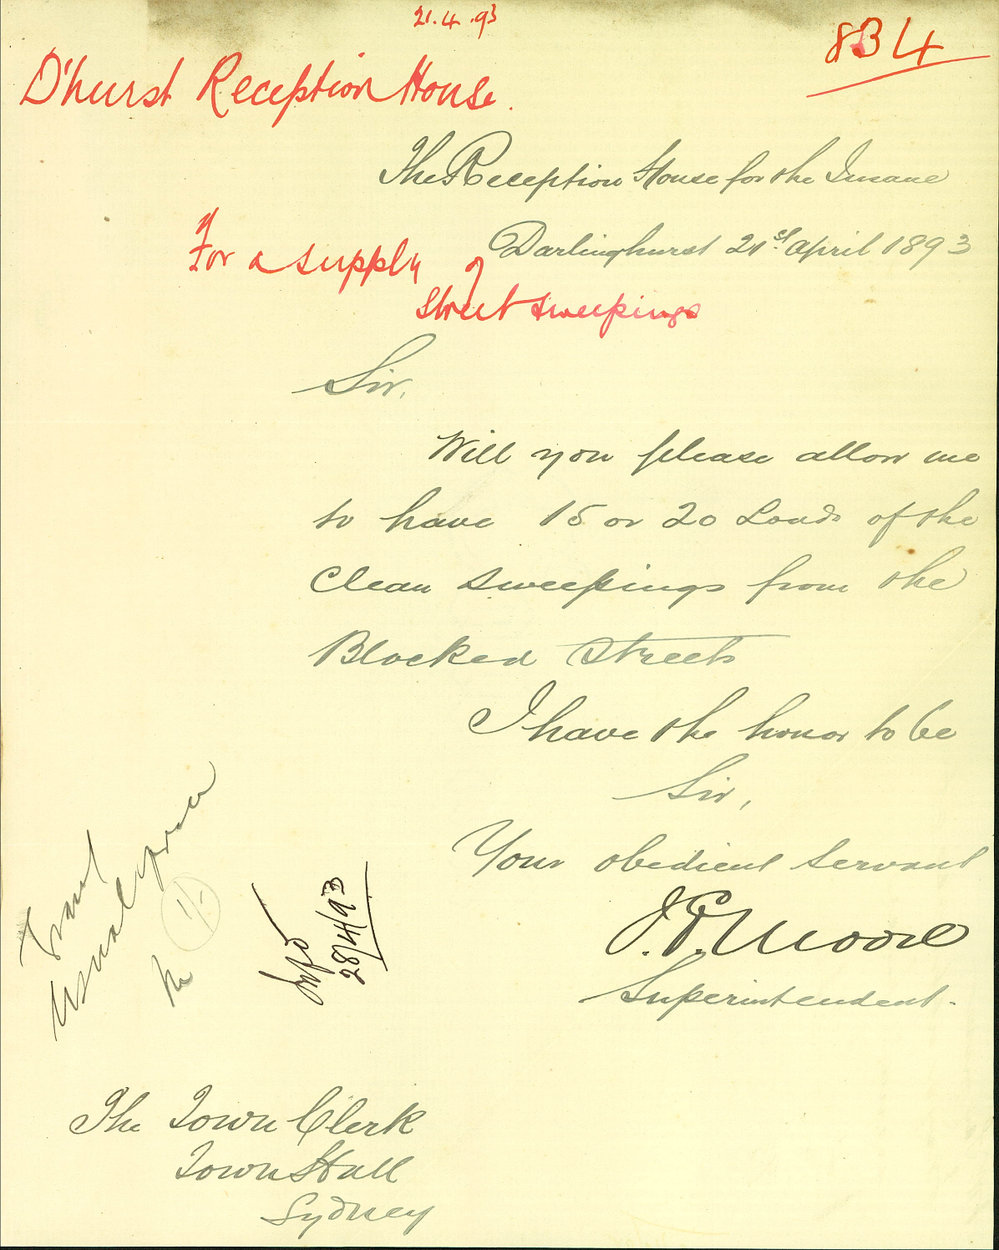 21.4.93
834
D'hurst Reception House.
The Reception House for the Insane
Darlinghurst 21st April 1893
For a supply of
Street sweepings
Sir,
Will you please allow me
to have 15 or 20 Loads of the
Clean Sweepings from the
Blocked Streets
I have the honor to be
Sir,
Your obedient servant
J. P. Moore
Superintendent.
Grant
usual price
1/-
28/4/93
The Town Clerk
Town Hall
Sydney